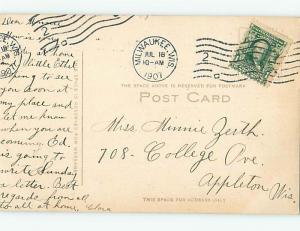 Dear Minnie
How is
at home
Little Ethel
going to see
you soon at
my place and
let me know
when you are
coming. Ed.
is going to
write Sunday
a letter. Best
regards from all
to all at home, Clara
MILWAUKEE, WIS.
JUL 18
10-AM
1907
2
THE SPACE ABOVE IS RESERVED FOR POSTMARK
POST CARD
Miss. Minnie Zerth.
708- College Ave.
Appleton Wis.
THIS SPACE FOR ADDRESS ONLY